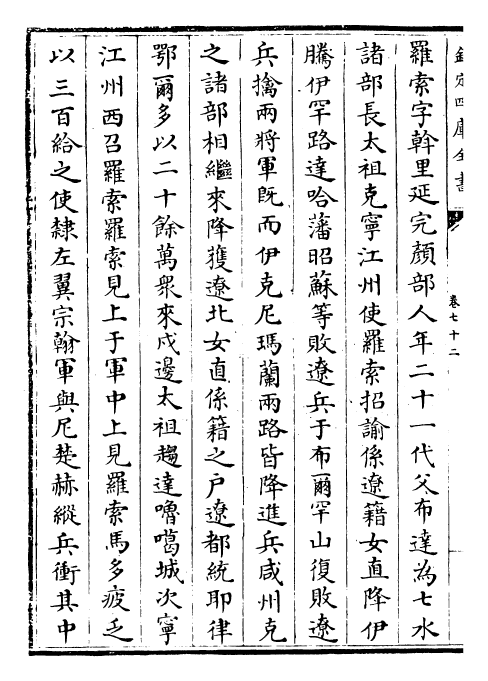 欽定四庫全書
卷七十二
羅索字斡里延完顔部人年二十一代父布達為七水
諸部長太祖克寧江州使羅索招諭係遼籍女直降伊
騰伊罕路達哈藩昭蘇等敗遼兵于布爾罕山復敗遼
兵擒兩將軍既而伊克尼瑪蘭兩路皆降進兵咸州克
之諸部相繼來降獲遼北女直係籍之户遼都統耶律
鄂爾多以二十餘萬衆來戍邊太祖趨達嚕噶城次寧
江州西召羅索羅索見上于軍中上見羅索馬多疲乏
以三百給之使隸左翼宗翰軍與尼楚赫縱兵衝其中